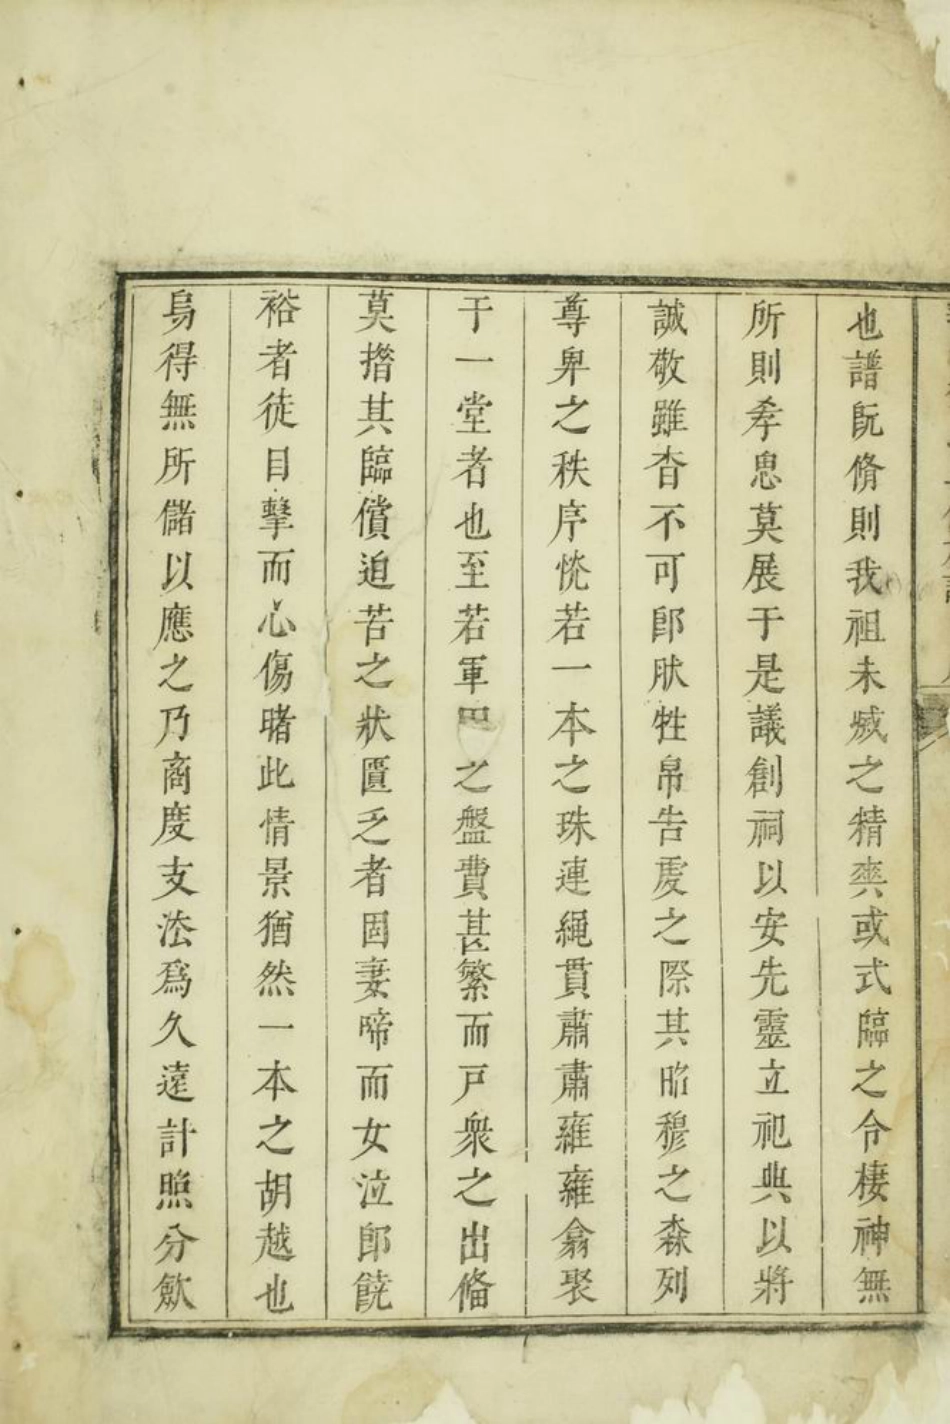 也譜旣脩則我祖未烕之精爽或式臨之令棲神無
所則孝思莫展于是議創祠以安先靈立祀典以將
誠敬雖杳不可卽肰牲帛告虔之際其昭穆之森列
尊卑之秩序恍若一本之珠連繩貫肅肅雍雍翕聚
于一堂者也至若軍之盤費甚繁而戸衆之出俻
莫揝其臨償追苦之狀匱乏者固妻啼而女泣卽饒
裕者徒目擊而心傷睹此情景猶然一本之胡越也
烏得無所儲以應之乃商度支法爲久遠計照分歛